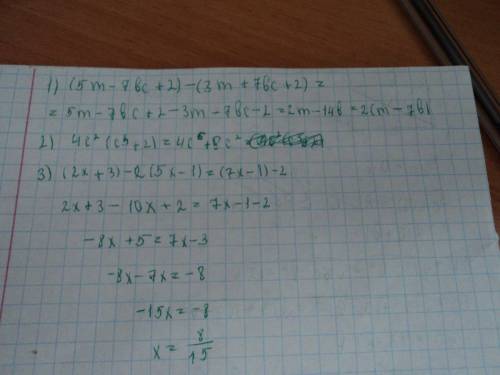 1) (5m - 7bc + 2) - (3m + 7bc + 2) =
= 5m - 7bc + 2 - 3m - 7bc - 2 = 2m - 14b = 2(m - 7b)
2) 4c² (c³ + 2) = 4c⁵ + 8c²
3) (2x + 3) - 2(5x - 1) = (7x - 1) - 2
2x + 3 - 10x + 2 = 7x - 1 - 2
-8x + 5 = 7x - 3
-8x - 7x = -8
-15x = -8
x = 8/15